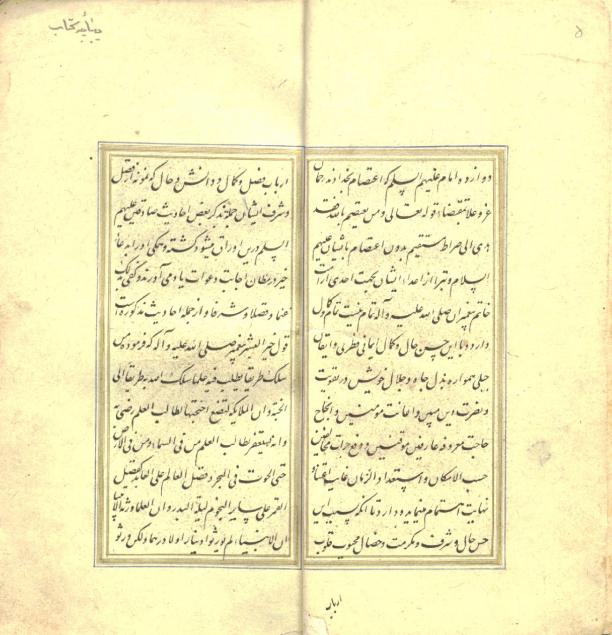 دیباچه کتاب
دوازده امام علیهم السلم که اعتصام بخداوند جهان
عز و علا بمقتضاء قوله تعالی و من یعتصم بالله فقد
هدی الی صراط مستقیم بدون اعتصام بایشان علیهم
السلام و تبرا از اعداء ایشان بحجت احدی از امت
خاتم پیغمبران صلی الله علیه و آله تمام نیست تمام و کمال
دارد و با این حسن حال و کمال ایمانی فطری و ایقان
جبلی همواره بذل جاه و جلال خویش در تقویت
و نصرت دین مبین و اعانت مؤمنین و انجاح
حاجت معروفه عارفین موقنین و دفع مخالفین
حسب الامکان و استعداد الزمان غایت اعتناء
نهایت اهتمام میفرماید و دارد تا آنکه بسبب این
حسن حال و شرف و مکرمت و خصال محبوب قلوب
ارباب
ارباب فضل و کمال و دانش و حال که نمونه از فضل
و شرف ایشان جمله مذکر بعض احادیث صادقین علیهم
السلم درین اوراق میشود گشته و همگی او را بدعاء
خیر در مظان اجابت دعوات یاد می آورند و کفی بذلک
فضلا و شرفا و از جمله احادیث مذکوره است
قول خیر البشر پیغمبر صلی الله علیه و آله که فرموده من
سلک طریقا یطلب فیه علما سلک الله به طریقا الی
الجنة و ان الملائکة لتضع اجنحتها لطالب العلم رضی به
و انه یستغفر لطالب العلم من فی السماء و من فی الارض
حتی الحوت فی البحر و فضل العالم علی العابد کفضل
القمر علی سایر النجوم لیلة البدر و ان العلماء ورثة الانبیاء
ان الانبیاء لم یورثوا دینارا و لا درهما ولکن ورثوا